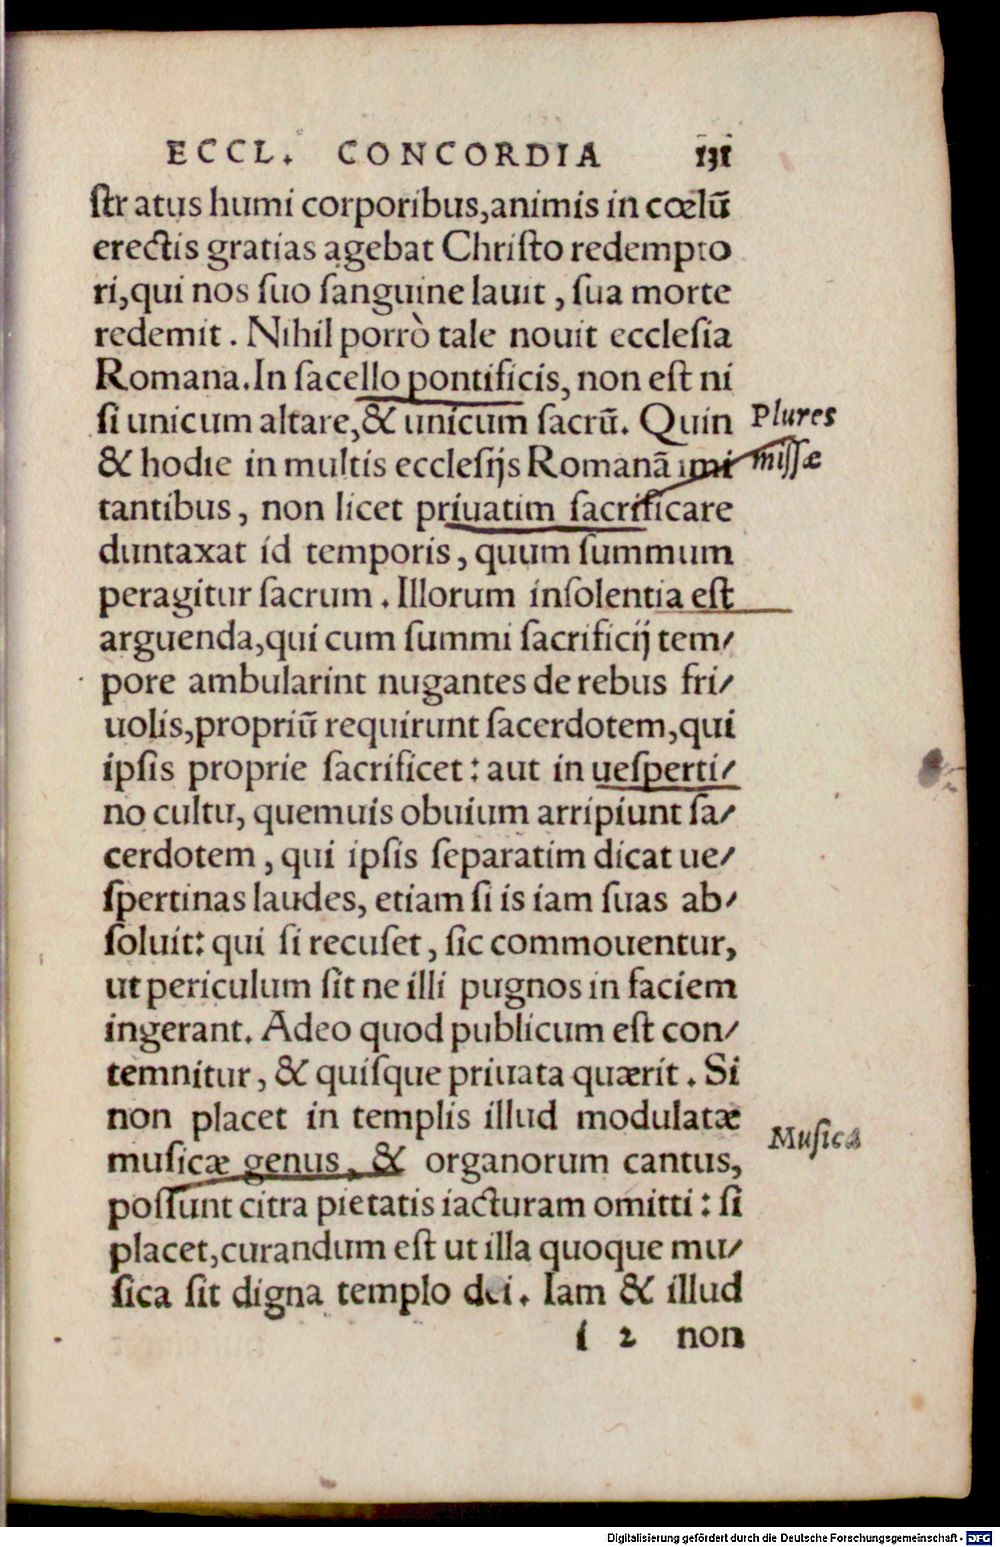 ECCL. CONCORDIA 131
ſtratus humi corporibus, animis in cœlũ
erectis gratias agebat Chriſto redempto
ri, qui nos ſuo ſanguine lauit, ſua morte
redemit. Nihil porrò tale nouit eccleſia
Romana. In ſacello pontificis, non eſt ni
ſi unicum altare, & unicum ſacrũ. Quin
Plures
& hodie in multis eccleſijs Romanã imi
miſſæ
tantibus, non licet priuatim ſacrificare
duntaxat id temporis, quum ſummum
peragitur ſacrum. Illorum inſolentia eſt
arguenda, qui cum ſummi ſacrificij tem⸗
pore ambularint nugantes de rebus fri⸗
uolis, propriũ requirunt ſacerdotem, qui
ipſis proprie ſacrificet: aut in ueſperti⸗
no cultu, quemuis obuium arripiunt ſa⸗
cerdotem, qui ipſis ſeparatim dicat ue⸗
ſpertinas laudes, etiam ſi is iam ſuas ab⸗
ſoluit: qui ſi recuſet, ſic commouentur,
ut periculum ſit ne illi pugnos in faciem
ingerant. Adeo quod publicum eſt con⸗
temnitur, & quiſque priuata quærit. Si
non placet in templis illud modulatæ
Muſica
muſicæ genus, & organorum cantus,
poſſunt citra pietatis iacturam omitti: ſi
placet, curandum eſt ut illa quoque mu⸗
ſica ſit digna templo dei. Iam & illud
i 2 non
Digitalisierung gefördert durch die Deutsche Forschungsgemeinschaft - DFG